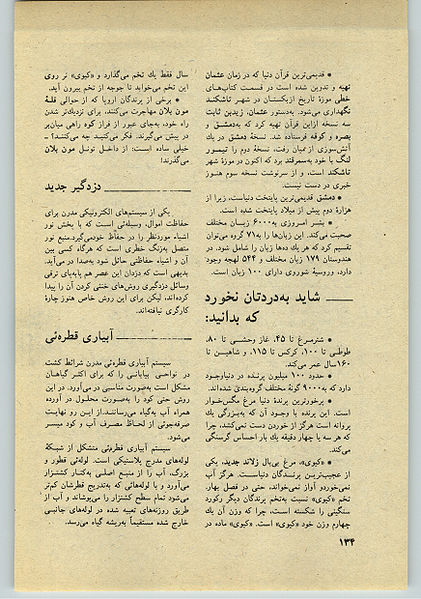 ● قدیمی‌ترین قرآن دنیا که در زمان عثمان
تهیه و تدوین شده است در قسمت کتاب‌های
خطی موزهٔ تاریخ ازبکستان در شهر تاشکند
نگهداری می‌شود. به‌دستور عثمان، زیدبن ثابت
سه نسخه ازاین قرآن تهیه کرد که به‌دمشق و
بصره و کوفه فرستاده شد. نسخهٔ دمشق در یك
آتش‌سوزی ازمیان رفت، نسخهٔ دوم را تیمور
لنگ با خود به‌سمرقند برد که اکنون در موزهٔ شهر
تاشکند است، و از سرنوشت نسخه سوم هنوز
خبری در دست نیست.
● دمشق قدیمی‌ترین پایتخت دنیاست، زیرا از
هزارهٔ دوم پیش از میلاد پایتخت شده است.
● بشر امروزی به‌۶۰۰۰ زبان مختلف
صحبت می‌کند. این زبان‌ها را به‌۷۱ گروه می‌توان
تقسیم کرد که هر یك ده‌ها زبان را شامل شود. در
هندوستان ۱۷۹ زبان مختلف و ۵۴۴ لهجه وجود
دارد، وروسیهٔ شوروی دارای ۱۰۰ زبان است.
شاید به‌دردتان نخورد
که بدانید:
● شترمرغ تا ۴۵، غاز وحشی تا ۸۰،
طوطی تا ۱۰۰، کرکس تا ۱۱۵، و شاهین تا
۱۶۰سال عمر می‌کند.
● حدود ۱۰۰ میلیون پرنده در دنیاوجود
دارد که به‌۹۰۰۰ گونهٔ مختلف گروه‌بندی شده‌اند.
● پرخورترین پرندهٔ دنیا مرغ مگس‌خوار
است. این پرنده با وجود آن که به‌بزرگی یك
پروانه است هرگز از خوردن دست نمی‌کشد، چرا
که هر سه یا چهار دقیقه یك بار احساس گرسنگی
می‌کند.
● «کیوی»، مرغ بی‌بال زلاند جدید، یکی
از عجیب‌ترین پرندگان دنیاست. هرگز آب
نمی‌خوردو آواز نمی‌خواند، حتی در فصل بهار.
تخم «کیوی» نسبت به‌تخم پرندگان دیگر رکورد
سنگینی را شکسته است، چرا که وزن آن یك
چهارم وزن خود «کیوی» است. «کیوی» ماده در
سال فقط یك تخم می‌گذارد و «کیوی» نر روی
این تخم می‌خوابد تا جوجه از تخم بیرون آید.
● برخی از پرندگان اروپا که از حوالی قلهٔ
مون بلان مهاجرت می‌کنند، برای نزدیك‌تر شدن
راه خود، به‌جای عبور از فراز کوه راهی میان‌بر
در پیش می‌گیرند. فکر می‌کنید چه می‌کنند؟ –
خیلی ساده است: از داخل تونل مون بلان
می‌گذرند!
دزدگیر جدید
یکی از سیستم‌های الکترونیکی مدرن برای
حفاظت اموال، وسیله‌ئی است که با پخش نور
اشیاء موردنظر را در حفاظ خودمی‌گیرد.منبع نور
متصل به‌زنگ خطری است که هرگاه کسی بین
آن و اشیاء حفاظتی حائل شود به‌صدا در می‌آید.
بدیهی است که دزدان این عصر هم پابه‌پای ترقی
وسائل دزدگیری روش‌های خنثی کردن آن را پیدا
کرده‌اند، لیکن برای این روش خاص هنوز چارهٔ
کارگری نیافته‌اند.
آبیاری قطره‌ئی
سیستم آبیاری قطره‌ئی مدرن شرائط کشت
در نواحی بیابانی را که برای اکثر گیاهان
مشکل است به‌صورت مناسبی در می‌آورد. در این
روش حتی کود را به‌صورت محلول در آورده
همراه آب به‌گیاه می‌رسانند.از این رو نهایت
صرفه‌جوئی از لحاظ مصرف آب و کود میسر
می‌شود.
سیستم آبیاری قطره‌ئی متشکل از شبکهٔ
لوله‌های مدرج پلاستیکی است. لوله‌ئی قطور و
بزرگ، آب را از منبع اصلی به‌کنار کشتزار
می‌آورد و با لوله‌هائی که به‌تدریج قطرشان کم‌تر
می‌شود تمام سطح کشتزار را می‌پوشاند و آب از
طریق روزنه‌های تعبیه شده در لوله‌های جانبی
خارج شده مستقیماً به‌ریشه گیاه می‌رسد.
۱۳۴